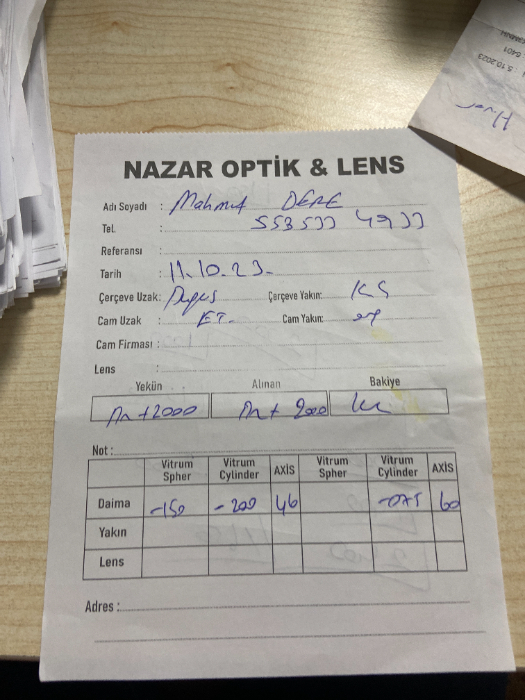 NAZAR OPTİK & LENS
Adı Soyadı : Mahmut DERE
Tel. 553 533 49 33
Referansı :
Tarih : 11.10.23.
Çerçeve Uzak: Çerçeve Yakın: KS
Cam Uzak : Cam Yakın:
Cam Firması :
Lens :
Yekün Alınan Bakiye
+2000 + 2000
Not :
Vitrum Spher Vitrum Cylinder AXİS Vitrum Spher Vitrum Cylinder AXİS
Daima -150 -200 46 -075 60
Yakın
Lens
Adres :
5.10.2023
6401